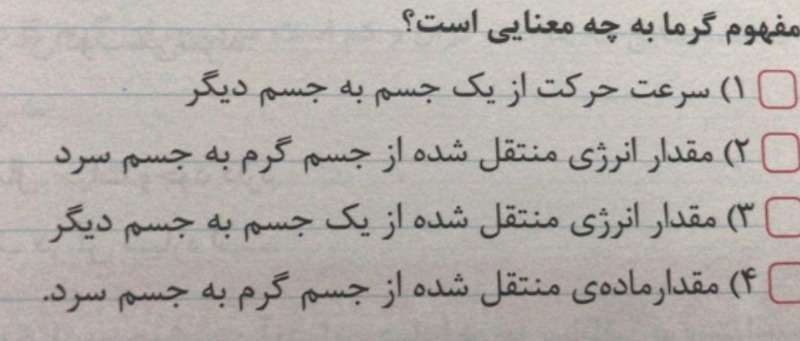 مفهوم گرما به چه معنایی است؟
۱) سرعت حرکت از یک جسم به جسم دیگر
۲) مقدار انرژی منتقل شده از جسم گرم به جسم سرد
۳) مقدار انرژی منتقل شده از یک جسم به جسم دیگر
۴) مقدارماده‌ی منتقل شده از جسم گرم به جسم سرد.